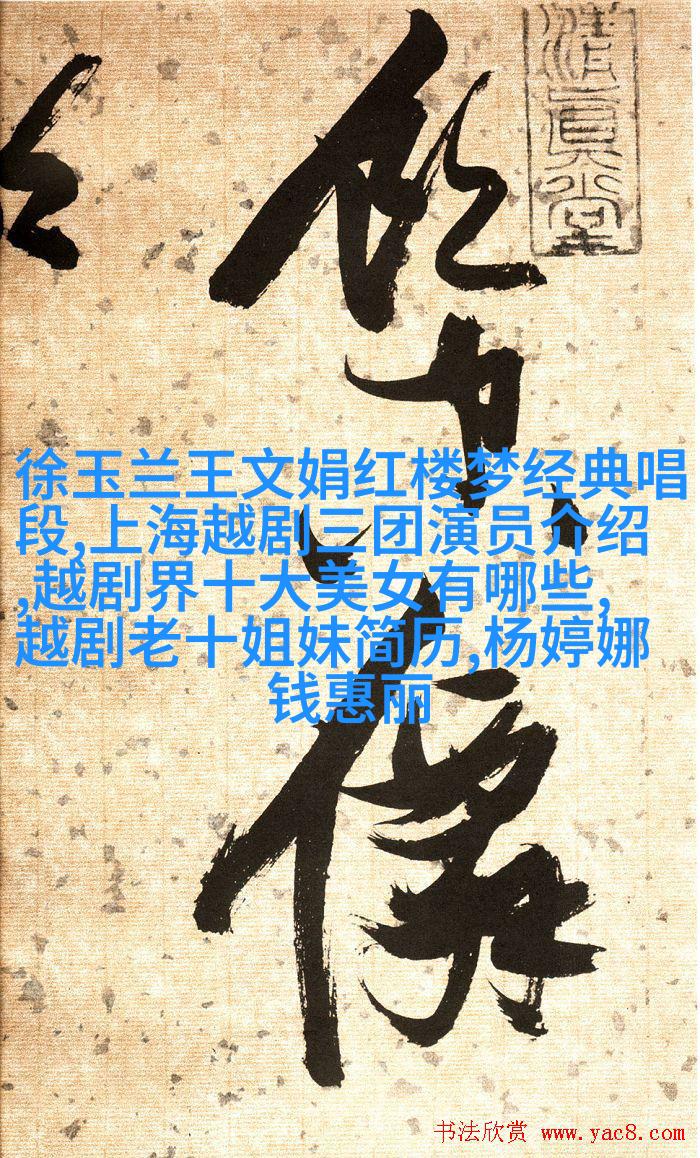 飲中八僊
徐玉兰王文娟红楼梦经典唱
段,上海越剧三团演员介绍
,越剧界十大美女有哪些,
越剧老十姐妹简历,杨婷娜
钱惠丽
书法欣赏 www.yac8.com